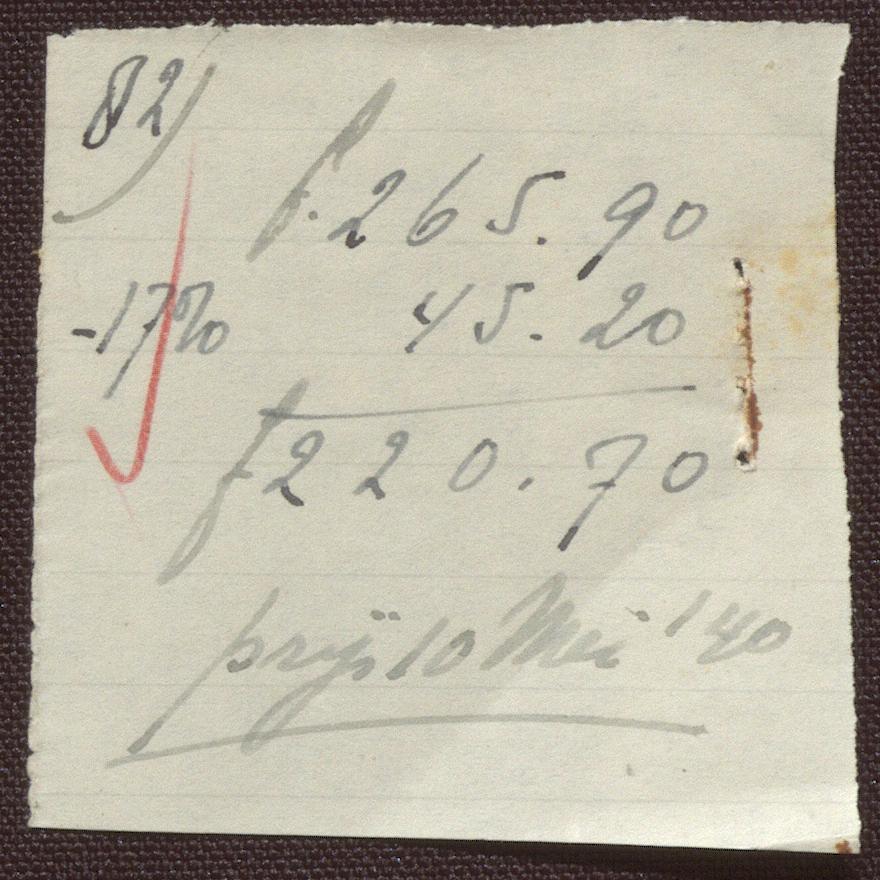 82)
f. 265.90
-17% 45.20
f 220.70
prijs 10 Mei '40